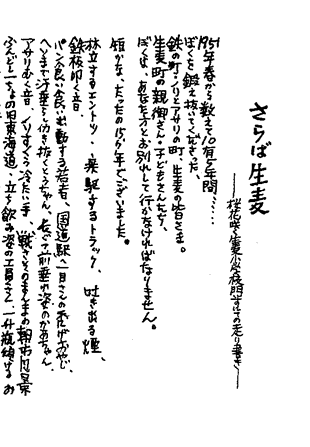 さらば生麦
――桜花咲く生麦小学校門
1951年春から数えて10有5年間……
ぼくを鍛え抜いてくださった、
鉄の町・ノリとアサリの町、生麦の皆さま。
生麦町の親御さん・子どもさんたち、
ぼくは、あなた方とお別れして行かなければなりません。
短かな、たったの15ヶ年でございました。
林立するエントツ、疾駆するトラック、吐き出る煙、
鉄板叩く音、
パン食い食い出勤する若者、国道駅
へそまで汗垂らし働き抜くとうちゃん、前垂れ姿のかあちゃん、
アサリむく音、冷たい手、そのまんまの朝市風景
ふんどし一ちょの旧東海道、立ち飲み姿の工員さん、一升瓶傾ける お